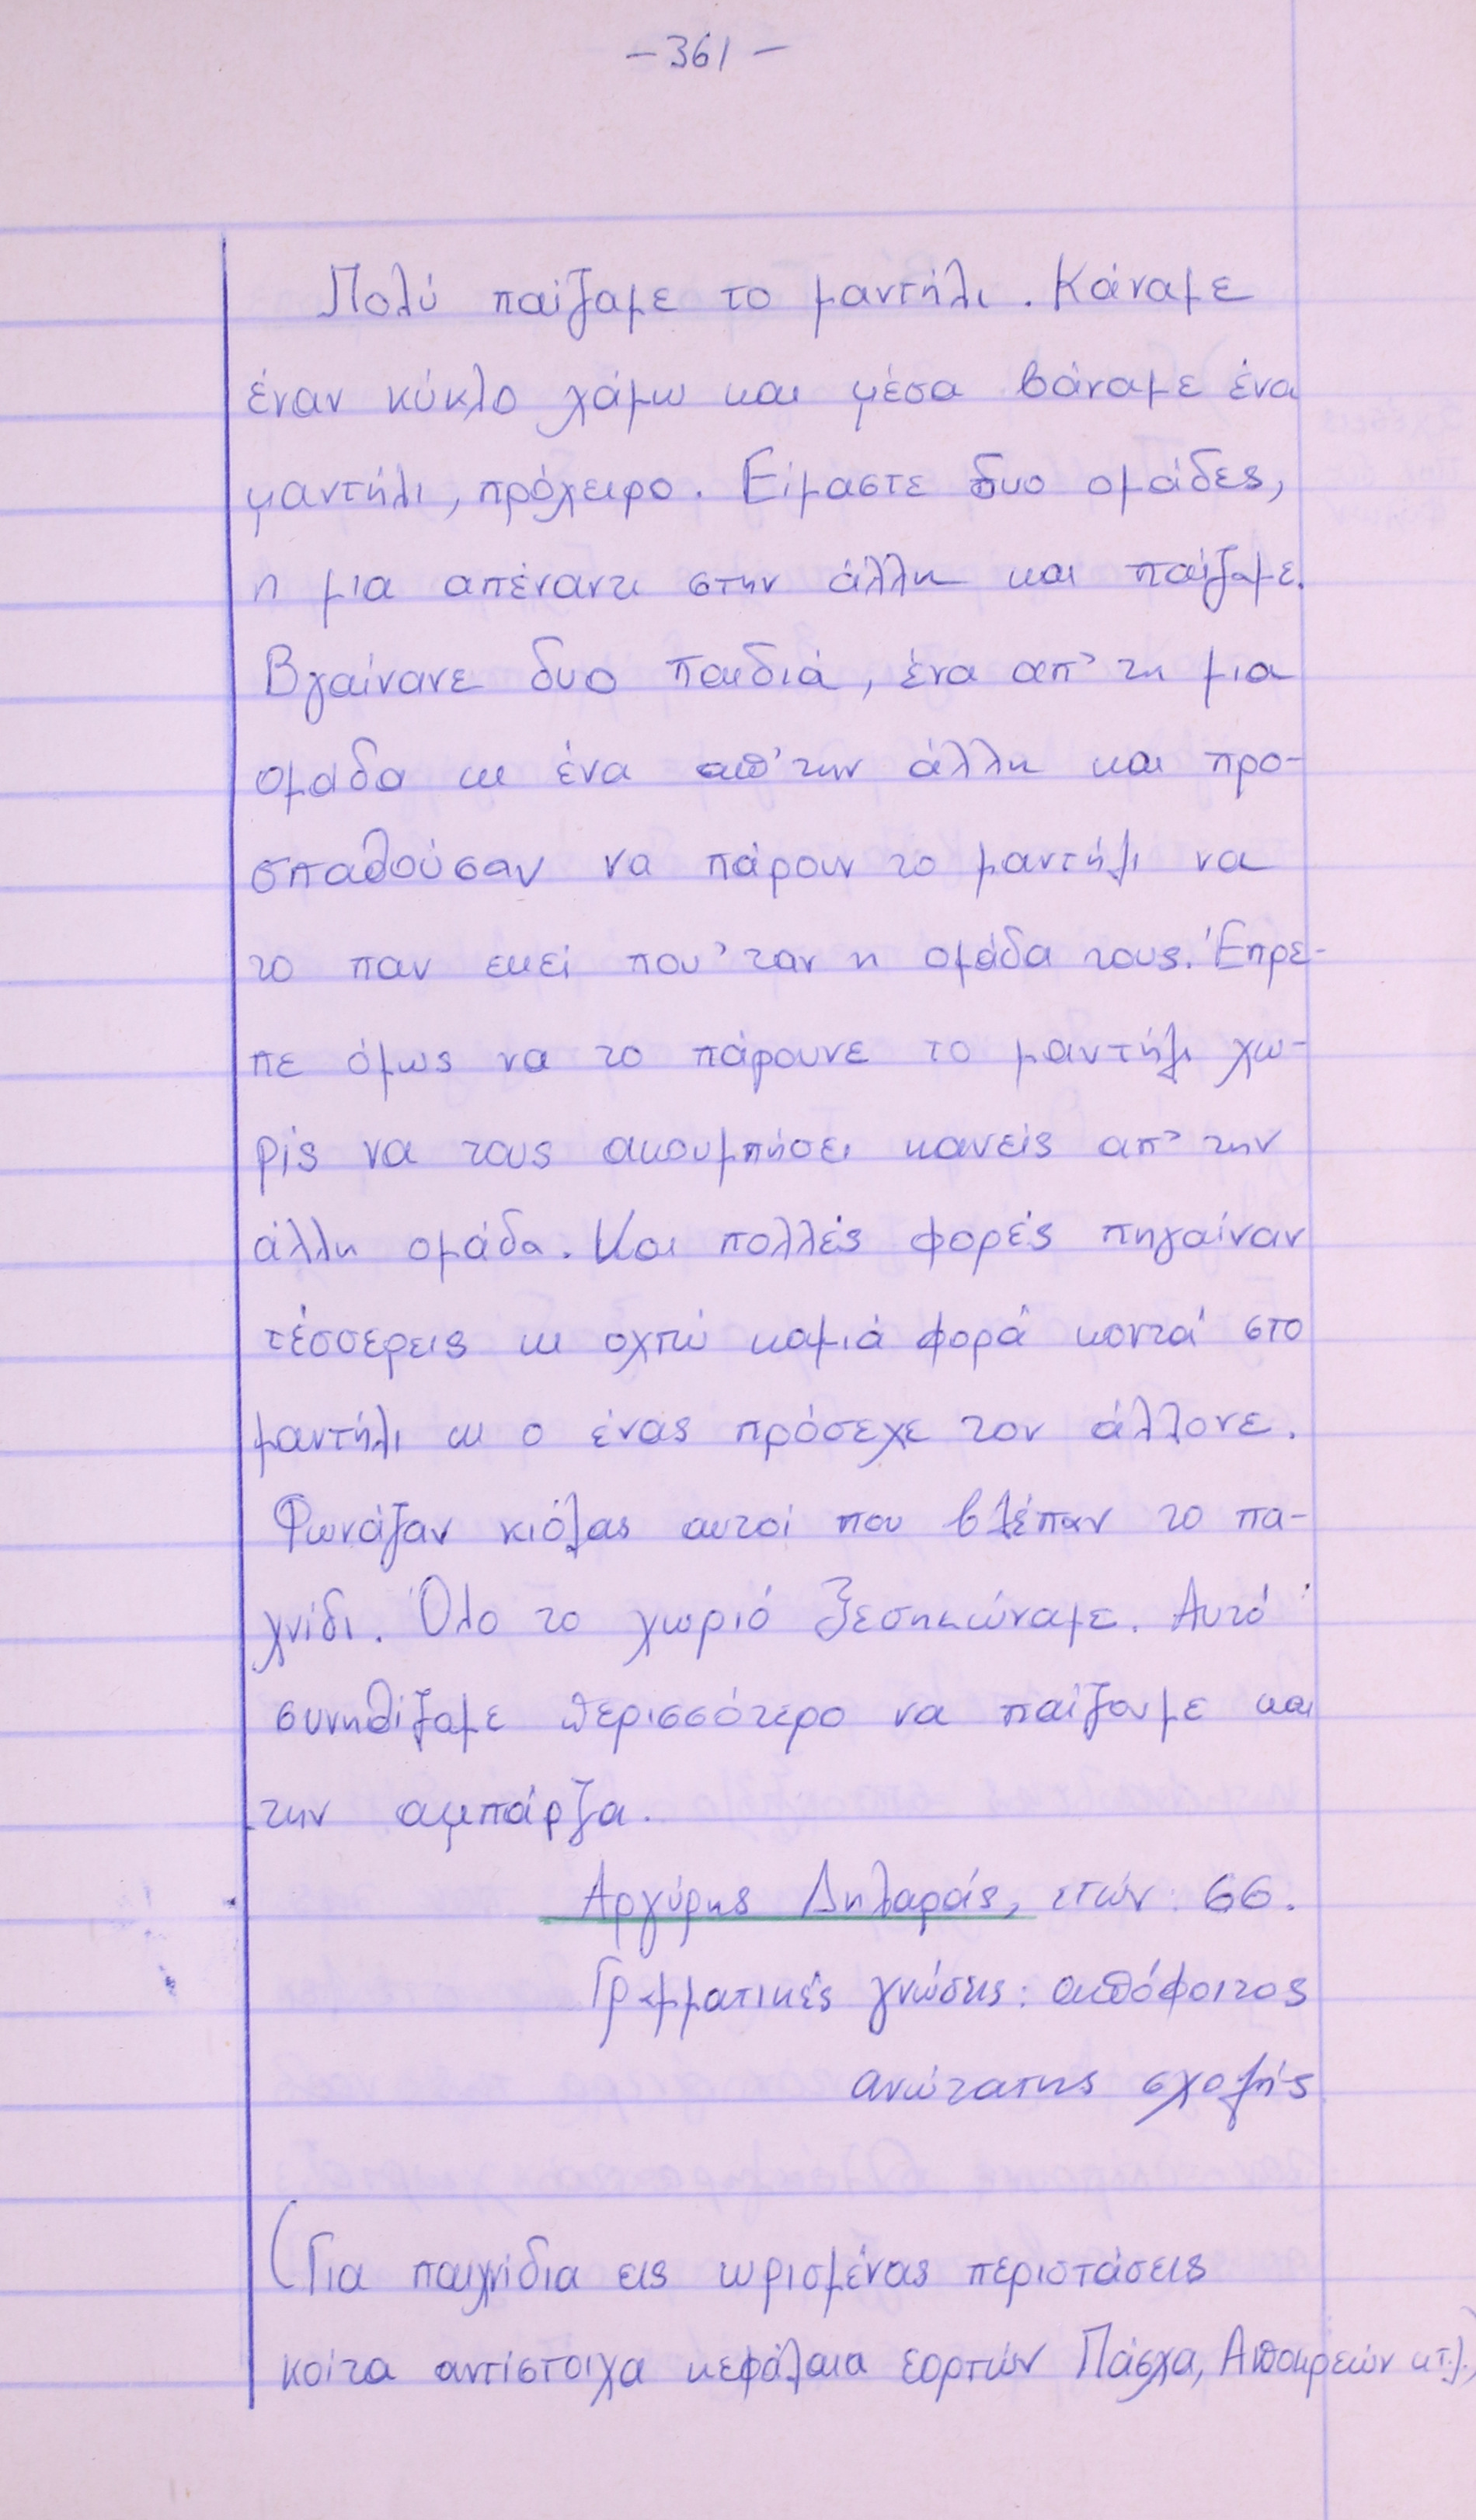 - 361 -
Πολύ παίζαμε το μαντήλι. Κάναμε
έναν κύκλο χάμω και μέσα βάναμε ένα
μαντήλι, πρόχειρο. Είμαστε δυο ομάδες,
η μια απέναντι στην άλλη και παίζαμε.
Βγαίνανε δυο παιδιά, ένα απ' τη μια
ομάδα κι ένα απ' την άλλη και προ-
σπαθούσαν να πάρουν το μαντήλι να
το παν εκεί που 'ταν η ομάδα τους. Έπρε-
πε όμως να το πάρουνε το μαντήλι χω-
ρίς να τους ακουμπήσει κανείς απ' την
άλλη ομάδα. Και πολλές φορές πηγαίναν
τέσσερεις κι οχτώ καμιά φορά κοντά στο
μαντήλι κι ο ένας πρόσεχε τον άλλονε.
Φωνάζαν κιόλας αυτοί που βλέπαν το πα-
χνίδι. Όλο το χωριό ξεσηκώναμε. Αυτό
συνηθίζαμε περισσότερο να παίζουμε και
την αμπάρζα.
Αργύρης Δηλαράς, ετών: 66.
Γραμματικές γνώσεις: απόφοιτος
ανώτατης σχολής
(Για παιχνίδια εις ωρισμένας περιστάσεις
κοίτα αντίστοιχα κεφάλαια εορτών Πάσχα, Αποκρεών κτ.λ.)